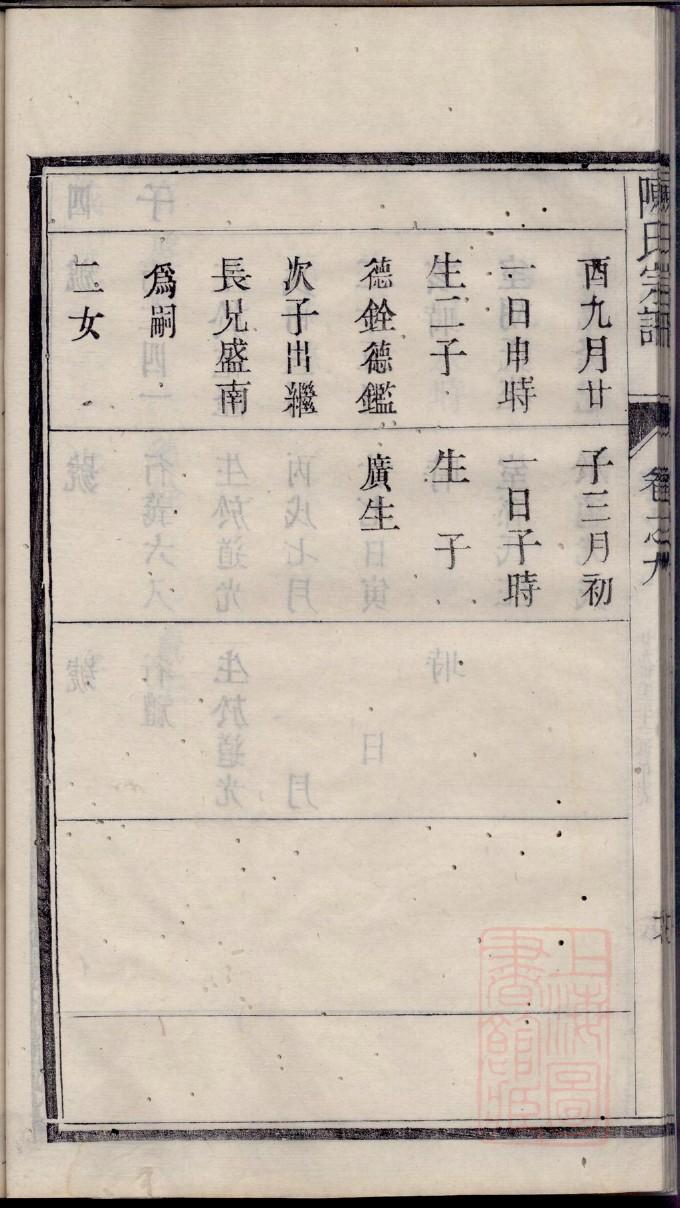 陳氏宗譜
卷之九
酉九月廿
一日申時
生二子
德銓德鑑
次子出繼
長兄盛南
爲嗣
二女
子三月初
一日子時
生　子
廣生
上海圖
書館藏